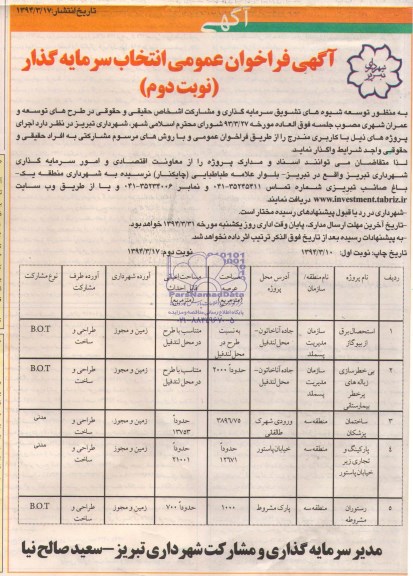 تاریخ انتشار: ۱۳۹۴/۳/۱۷
آگهی
آگهی فراخوان عمومی انتخاب سرمایه گذار
(نوبت دوم)
شهرداری تبریز
به منظور توسعه شیوه های تشویق سرمایه گذاری و مشارکت اشخاص حقیقی و حقوقی در طرح های توسعه و
عمران شهری مصوب جلسه فوق العاده مورخه ۹۳/۳/۲۷ شورای محترم اسلامی شهر، شهرداری تبریز در نظر دارد اجرای
پروژه های ذیل با کاربری مندرج را از طریق فراخوان عمومی و با روش های مرسوم مشارکتی به افراد حقیقی و
حقوقی واجد شرایط واگذار نماید.
لذا متقاضیان می توانند اسناد و مدارک پروژه را از معاونت اقتصادی و امور سرمایه گذاری
شهرداری تبریز واقع در تبریز- بلوار علامه طباطبایی (چایکنار) نرسیده به شهرداری منطقه یک-
باغ صائب تبریزی شماره تماس ۳۵۲۴۵۴۱۱-۰۴۱ و نمابر ۳۵۲۳۳۰۰۶-۰۴۱ و یا از طریق وب سایت
www.investment.tabriz.ir دریافت نمایند.
-شهرداری در رد یا قبول پیشنهادهای رسیده مختار است.
-تاریخ آخرین مهلت ارسال مدارک، پایان وقت اداری روز یکشنبه مورخه ۱۳۹۴/۳/۳۱ خواهد بود.
-به پیشنهادات رسیده بعد از تاریخ فوق الذکر ترتیب اثر داده نخواهد شد.
تاریخ چاپ: نوبت اول: ۱۳۹۴/۳/۱۰ نوبت دوم: ۱۳۹۴/۳/۱۷
ردیف نام پروژه نام منطقه/سازمان آدرس محل پروژه مساحت عرصه آورده شهرداری آورده طرف مشارکت نوع مشارکت
۱ استحصال برق از بیوگاز سازمان مدیریت پسماند جاده آناخاتون-محل لندفیل به نسبت طرح در محل لندفیل متناسب با طرح در محل لندفیل زمین و مجوز طراحی و ساخت B.O.T
۲ بی خطرسازی زباله های پرخطر بیمارستانی سازمان مدیریت پسماند جاده آناخاتون-محل لندفیل حدوداً ۲۰۰۰ متناسب با طرح در محل لندفیل زمین و مجوز طراحی و ساخت B.O.T
۳ ساختمان پزشکان منطقه سه ورودی شهرک طالقانی ۳۸۹۶/۷۵ حدوداً ۱۳۷۵۳ زمین و مجوز طراحی و ساخت مدنی
۴ پارکینگ و تجاری زیر خیابان پاستور منطقه سه خیابان پاستور حدوداً ۱۲۶۷۱ حدوداً ۲۱۰۰۱ زمین و مجوز طراحی و ساخت مدنی
۵ رستوران مشروطه منطقه سه پارک مشروط ۱۰۰۰ حدوداً ۷۰۰ زمین و مجوز طراحی و ساخت B.O.T
مدیر سرمایه گذاری و مشارکت شهرداری تبریز – سعید صالح نیا